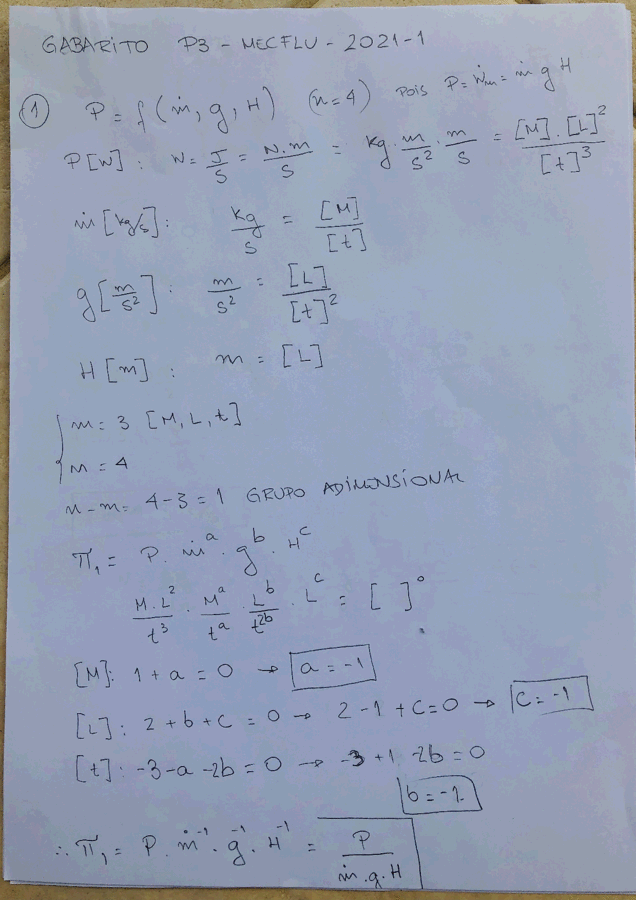 GABARITO P3 - MECFLU - 2021-1
① P = f (ṁ, g, H) (n=4) POIS P = Ẇm = ṁ g H
P [W] : W = J/S = N.m/S = kg . m/s² . m/s = [M].[L]²/[t]³
ṁ [kg/s] : kg/s = [M]/[t]
g [m/s²] : m/s² = [L]/[t]²
H [m] : m = [L]
m = 3 [M, L, t]
n = 4
n - m = 4 - 3 = 1 GRUPO ADIMENSIONAL
π₁ = P . ṁᵃ . gᵇ . Hᶜ
M.L²/t³ . Mᵃ/tᵃ . Lᵇ/t²ᵇ . Lᶜ = [ ]⁰
[M]: 1 + a = 0 → a = -1
[L]: 2 + b + c = 0 → 2 - 1 + C = 0 → C = -1
[t]: -3 - a - 2b = 0 → -3 + 1 - 2b = 0
b = -1
∴ π₁ = P . ṁ⁻¹ . g⁻¹ . H⁻¹ = P/ṁ.g.H